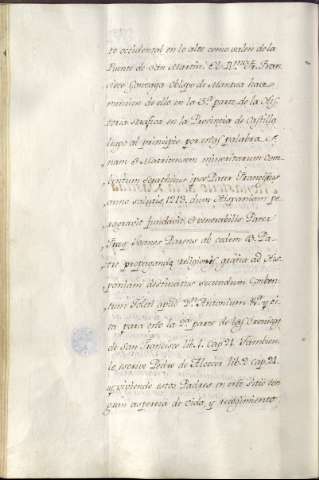 te occidental en lo alto como salen de la
Puente de San Martin. El Rmo Fr. Fran
cisco Gonzaga Obispo de Mantua hace
mencion de ello en la 3ª parte de la His
toria Serafica en la Provincia de Castilla
luego al principio por estas palabras. E
nam & Matritensem minoritarum Con
ventum Seraphicus ipse Pater Franciscus
anno salutis 1219. dum Hispaniam pe
ragraret fundavit, & venerabilis Pater
Frater Joanes Parens ab eodem B. Pa
tre propagandæ religionis gratia ad His
paniam destinatus secundum Conven
tum Toleti apud Dm Antonium &c. y ci
ta para esto la 2ª parte de las Cronicas
de San Francisco lib. 1. cap. 21. Tambien
lo escrive Pedro de Alcocer lib. 2. cap. 21.
y viviendo estos Padres en este sitio con
gran aspereza de vida, y recogimiento